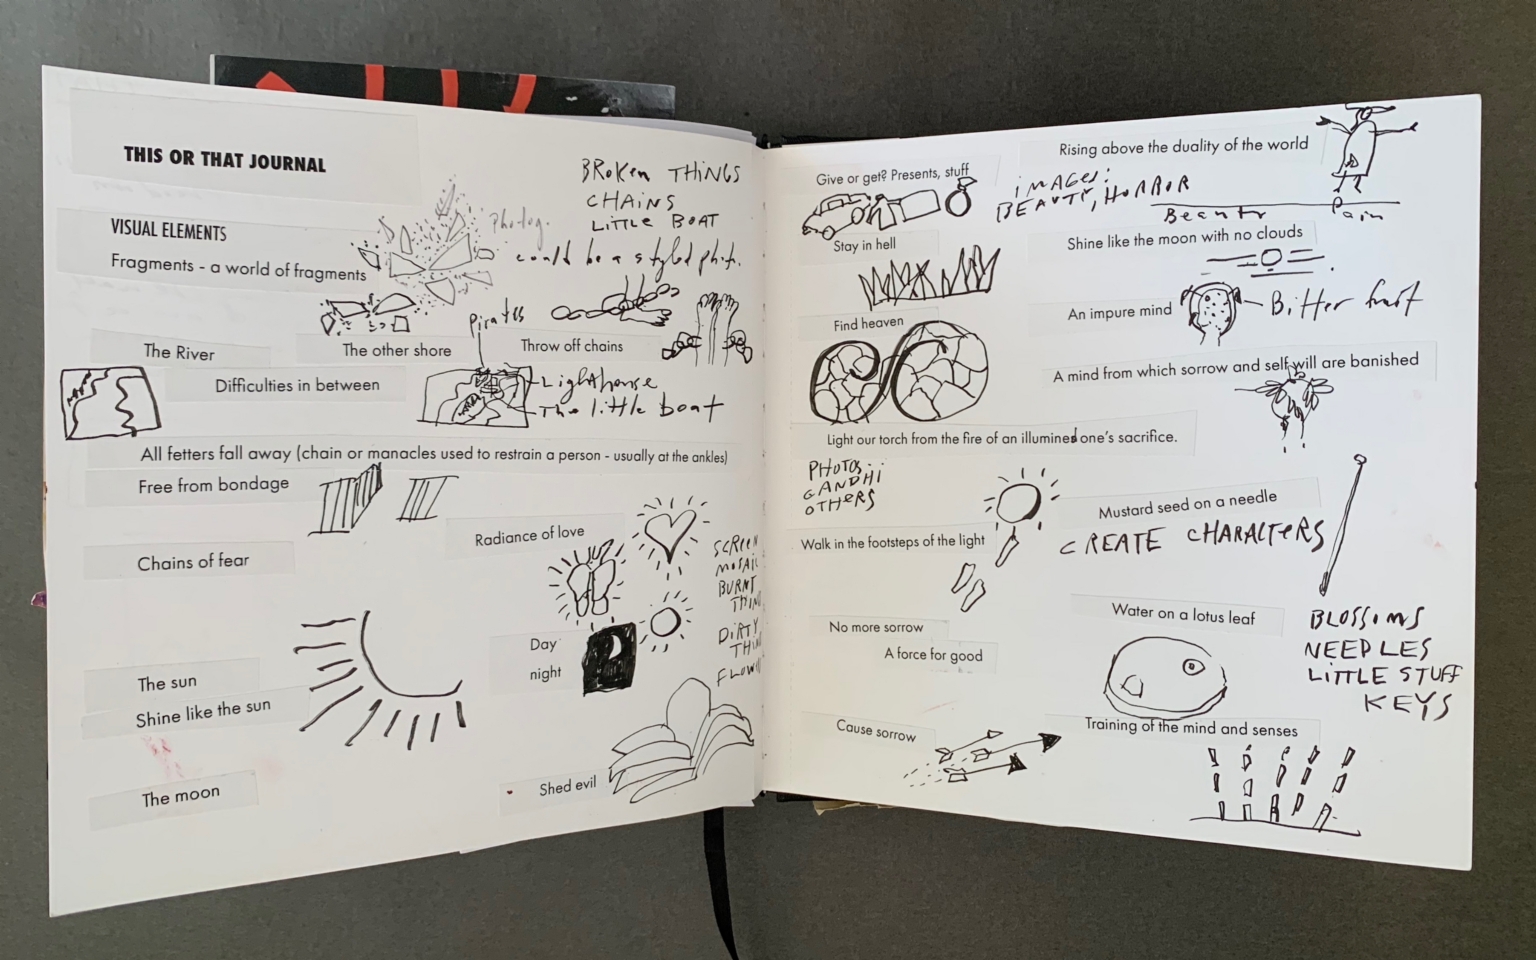 THIS OR THAT JOURNAL
BROKEN THINGS
CHAINS
LITTLE BOAT
photog.
could be a styled phot.
VISUAL ELEMENTS
Fragments - a world of fragments
pirates
The River
The other shore
Throw off chains
Difficulties in between
Lighthouse
The little boat
All fetters fall away (chain or manacles used to restrain a person - usually at the ankles)
Free from bondage
Radiance of love
Chains of fear
SCREEN
MOSAIC
BURNT
THIN
DIRTY
THIN
FLOW
Day
night
The sun
Shine like the sun
The moon
Shed evil
Give or get? Presents, stuff
Rising above the duality of the world
IMAGES:
BEAUTY, HORROR
Beauty
Pain
Stay in hell
Shine like the moon with no clouds
Find heaven
An impure mind
Bitter fruit
A mind from which sorrow and self will are banished
Light our torch from the fire of an illumined one's sacrifice.
PHOTOS:
GANDHI
OTHERS
Mustard seed on a needle
CREATE CHARACTERS
Walk in the footsteps of the light
Water on a lotus leaf
BLOSSOMS
NEEDLES
LITTLE STUFF
KEYS
No more sorrow
A force for good
Cause sorrow
Training of the mind and senses